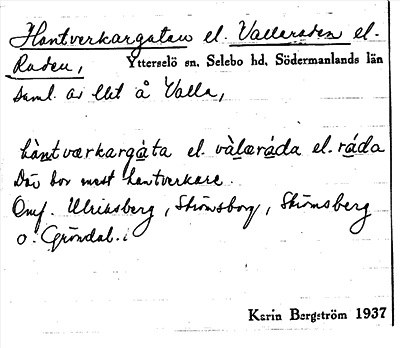 Hantverkargatan el. Vallaraden el.
Raden, Ytterselö sn, Selebo hd, Södermanlands län
Saml. av lht å Valla,
hàntværkargàta el. vàlæråda el. råda
Där bor mest hantverkare.
Omf. Ulriksberg, Strömsborg, Strömsberg
o. Gröndal.
Karin Bergström 1937